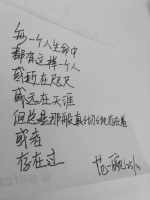 每一个人生命中
都有这样一个人
或近在咫尺
或远在天涯
但总是那般真切地存在着
或者
存在过